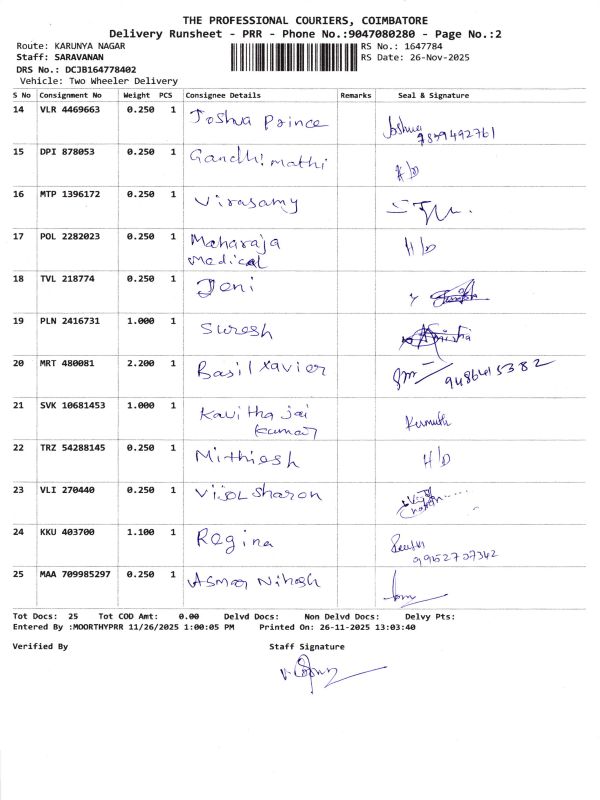 THE PROFESSIONAL COURIERS, COIMBATORE
Delivery Runsheet - PRR - Phone No.:9047080280 - Page No.:2
Route: KARUNYA NAGAR
RS No.: 1647784
Staff: SARAVANAN
RS Date: 26-Nov-2025
DRS No.: DCJB164778402
Vehicle: Two Wheeler Delivery
S No Consignment No Weight PCS Consignee Details Remarks Seal & Signature
14 VLR 4469663 0.250 1 Joshua Prince Joshua
7859492761
15 DPI 878053 0.250 1 Gandhimathi H/D
16 MTP 1396172 0.250 1 Virasamy
17 POL 2282023 0.250 1 Maharaja H/D
Medical
18 TVL 218774 0.250 1 Jeni
19 PLN 2416731 1.000 1 Suresh
20 MRT 480081 2.200 1 Basil Xavier
21 SVK 10681453 1.000 1 Kavitha jai
Kumar
22 TRZ 54288145 0.250 1 Mithiesh H/D
23 VLI 270440 0.250 1 Sharon
24 KKU 403700 1.100 1 Regina
9952707342
25 MAA 709985297 0.250 1
Tot Docs: 25 Tot COD Amt: 0.00 Delvd Docs: Non Delvd Docs: Delvy Pts:
Entered By :MOORTHYPRR 11/26/2025 1:00:05 PM Printed On: 26-11-2025 13:03:40
Verified By Staff Signature